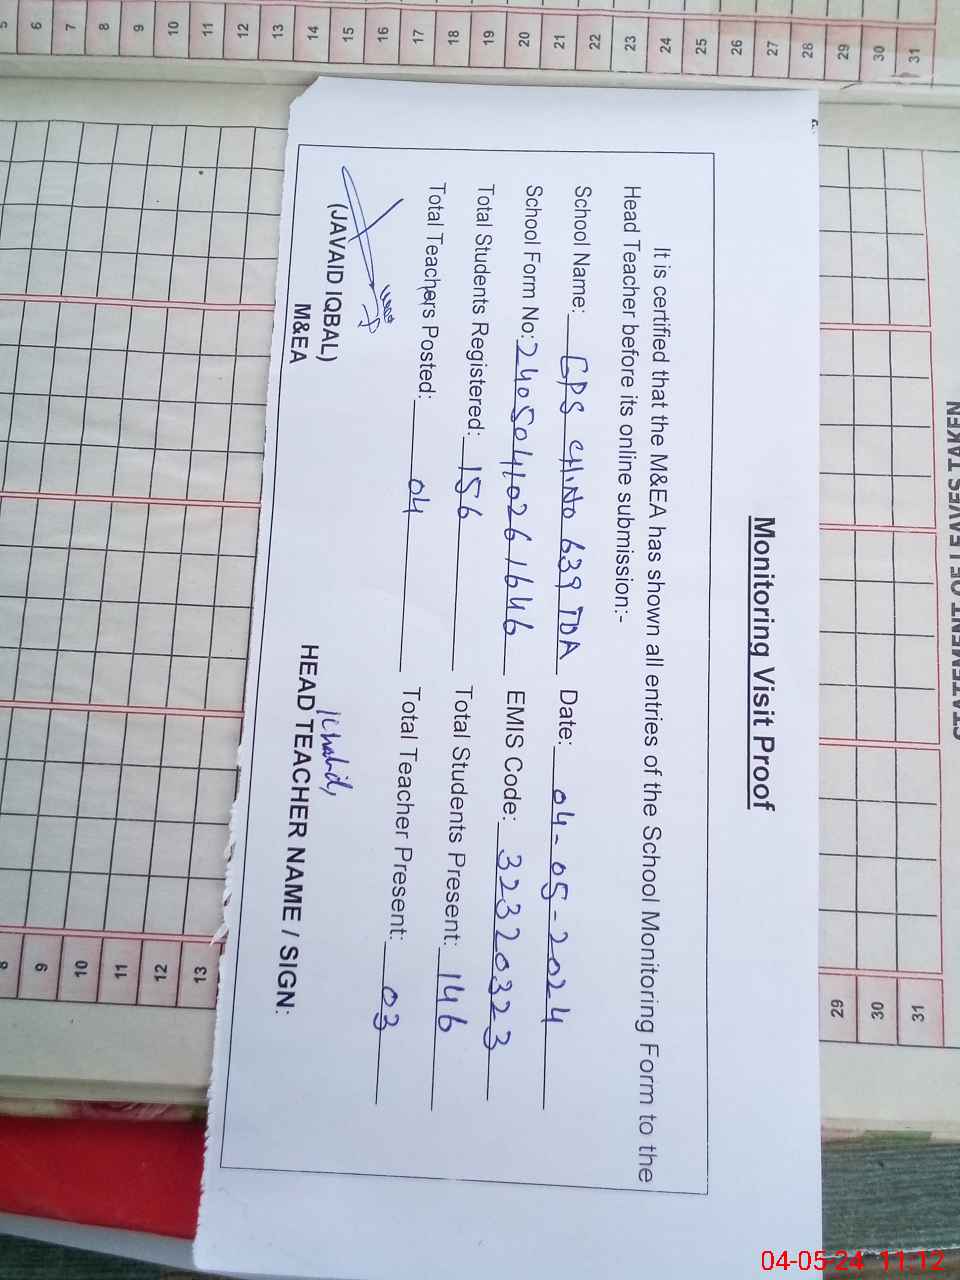 Monitoring Visit Proof
It is certified that the M&EA has shown all entries of the School Monitoring Form to the
Head Teacher before its online submission:-
School Name: GPS CH.No 639 TDA Date: 04-05-2024
School Form No: 2405041026 1646 EMIS Code: 32320323
Total Students Registered: 156 Total Students Present: 146
Total Teachers Posted: 04 Total Teacher Present: 03
(JAVAID IQBAL)
M&EA
Khalid,
HEAD TEACHER NAME / SIGN:
5 6 7 8 9 10 11 12 13 14 15 16 17 18 19 20 21 22 23 24 25 26 27 28 29 30 31
8 9 10 11 12 13
29 30 31
STATEMENT OF LEAVES TAKEN
04-05-24 11:12